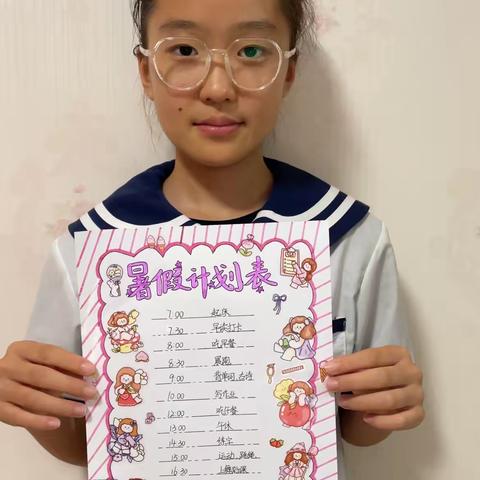 暑假计划表
7:00 起床
7:30 早读打卡
8:00 吃早餐
8:30 晨跑
9:00 背单词、古诗
10:00 写作业
12:00 吃午餐
13:00 午休
14:30 练字
15:00 运动、跳绳
16:30 上舞蹈课